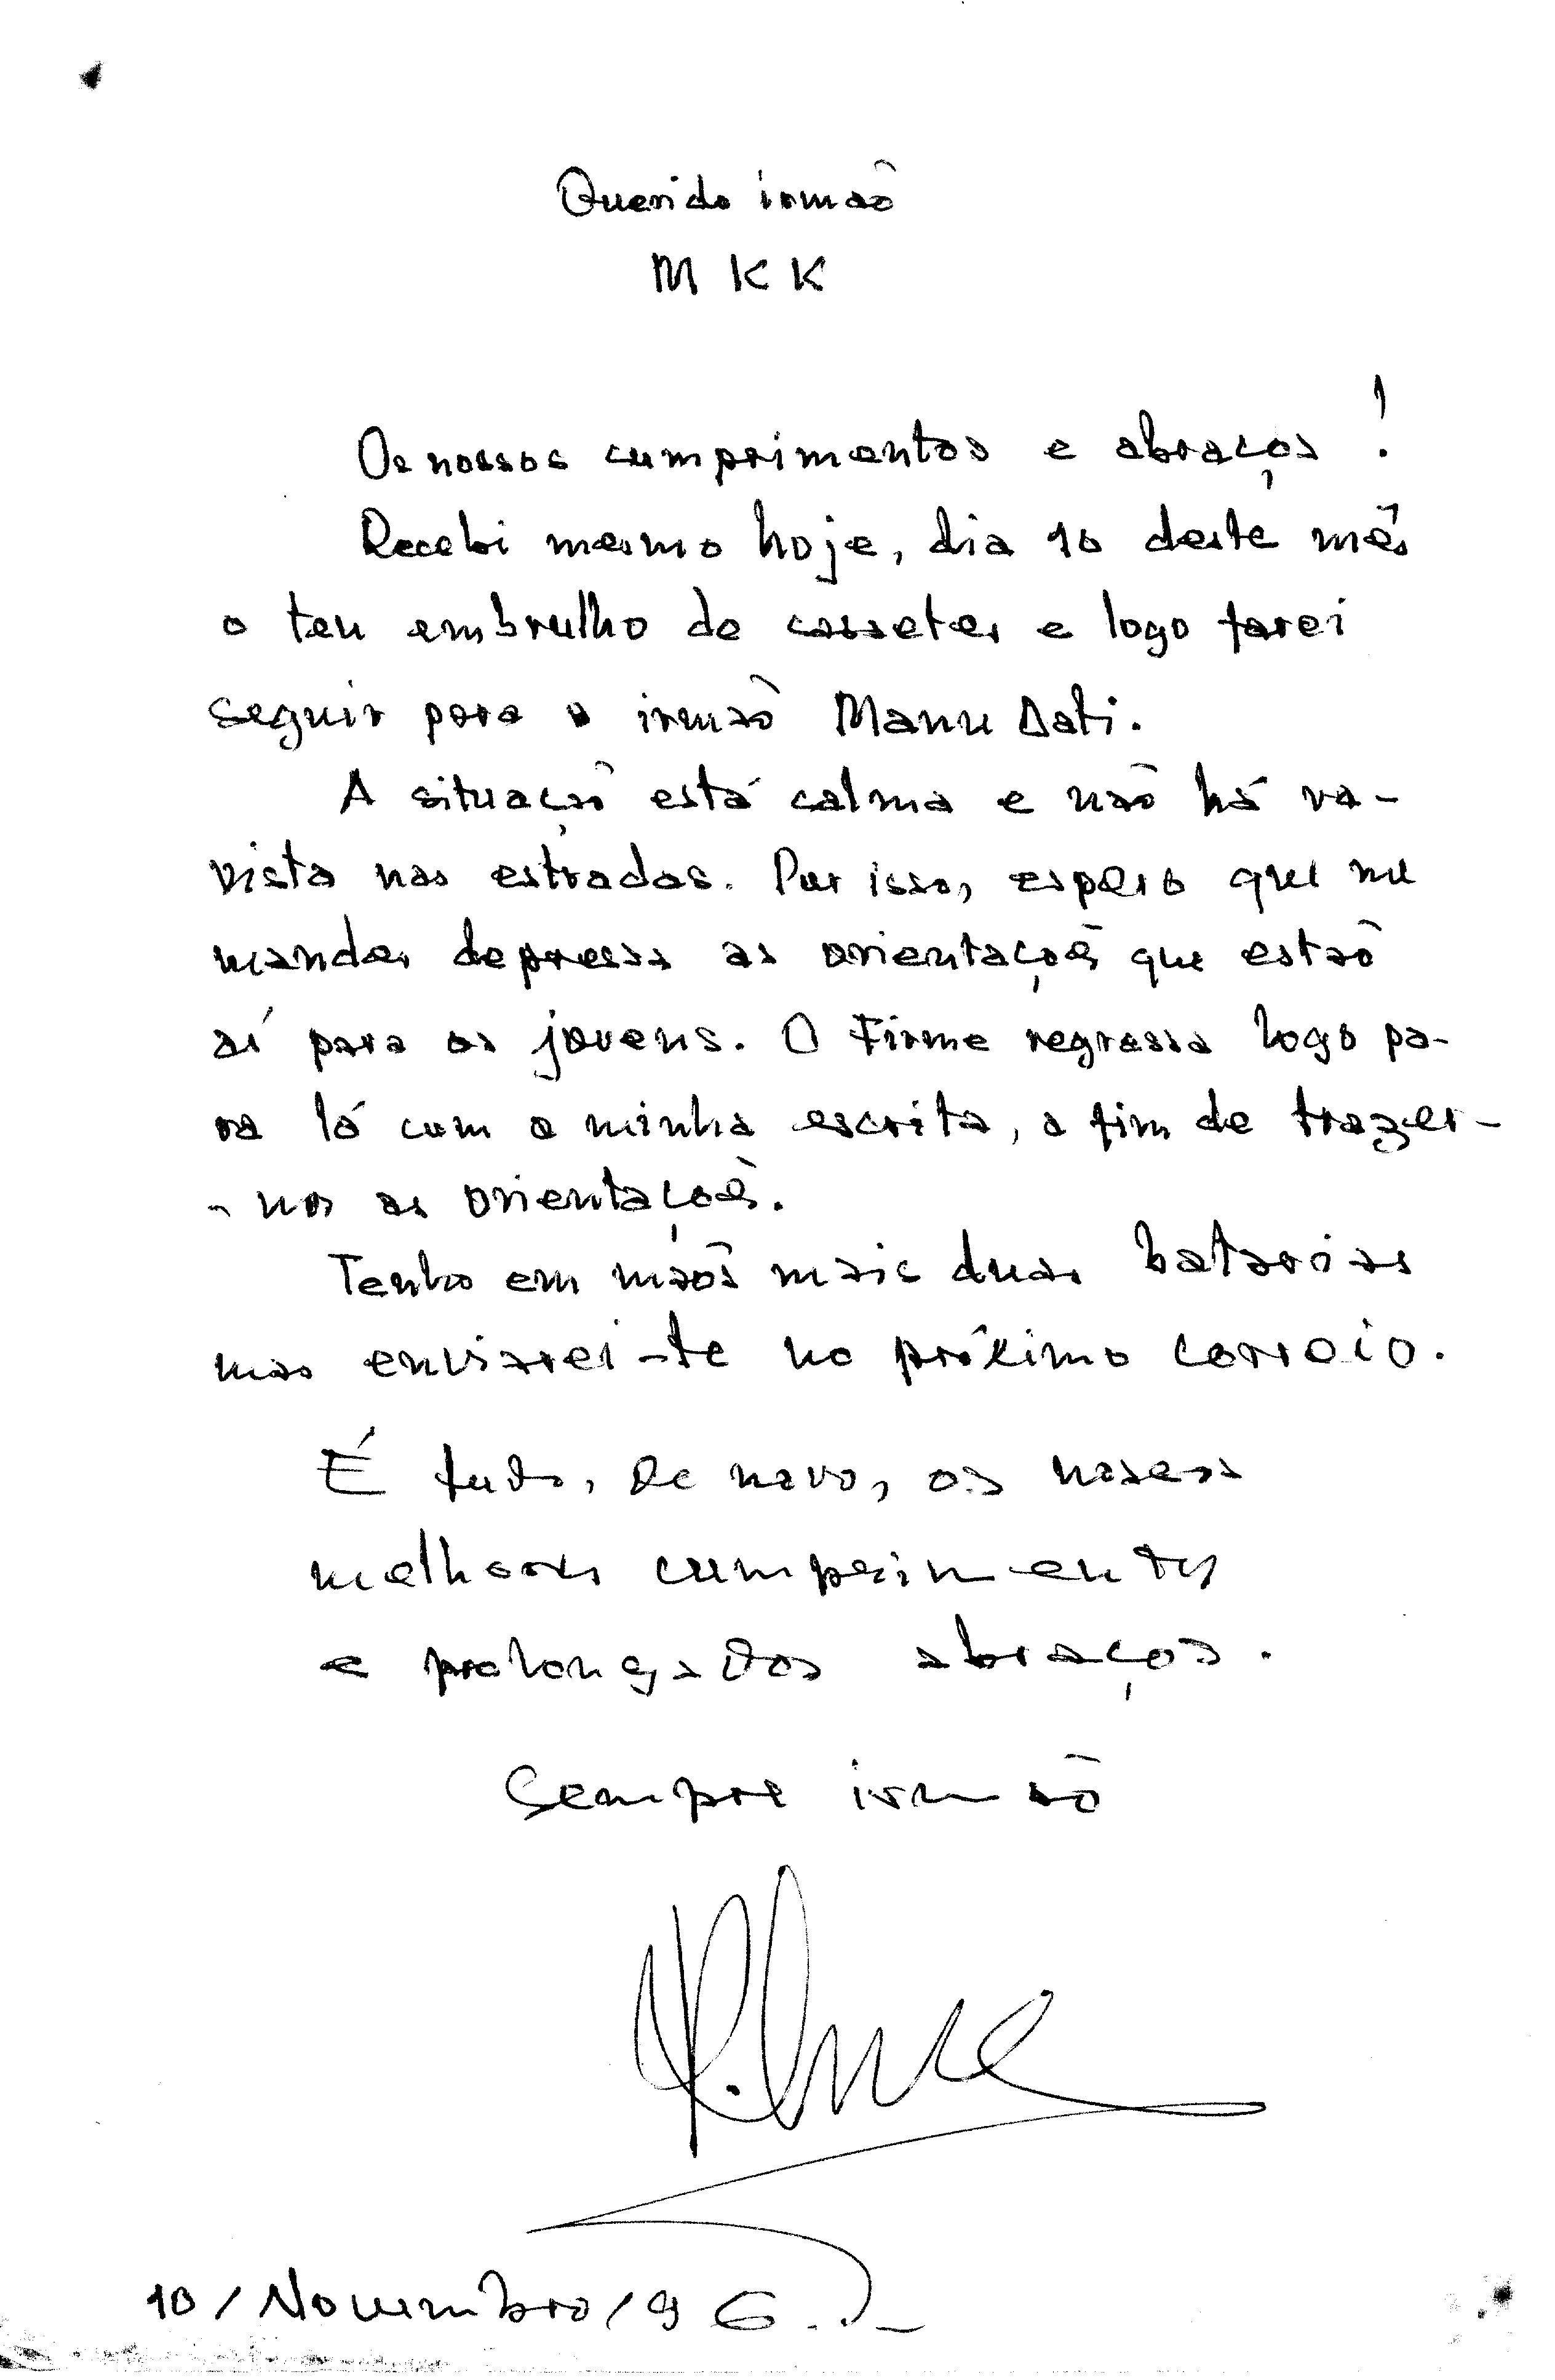 Querido irmão
M K K
Os nossos cumprimentos e abraços!
Recebi mesmo hoje, dia 10 deste mês
o teu embrulho de cassetes e logo farei
seguir para o irmão Manu Dati.
A situação está calma e não há re-
vista nas estradas. Por isso, espero que me
mandes depressa as orientações que estão
aí para os jovens. O Firme regressa logo pa-
ra lá com a minha escrita, a fim de trazer-
- nos as orientações.
Tenho em mãos mais duas batarias
mas enviarei-te no próximo correio.
É tudo, De novo, os nossos
melhores cumprimentos
e prolongados abraços.
Sempre irmão
10/Novembro/96.